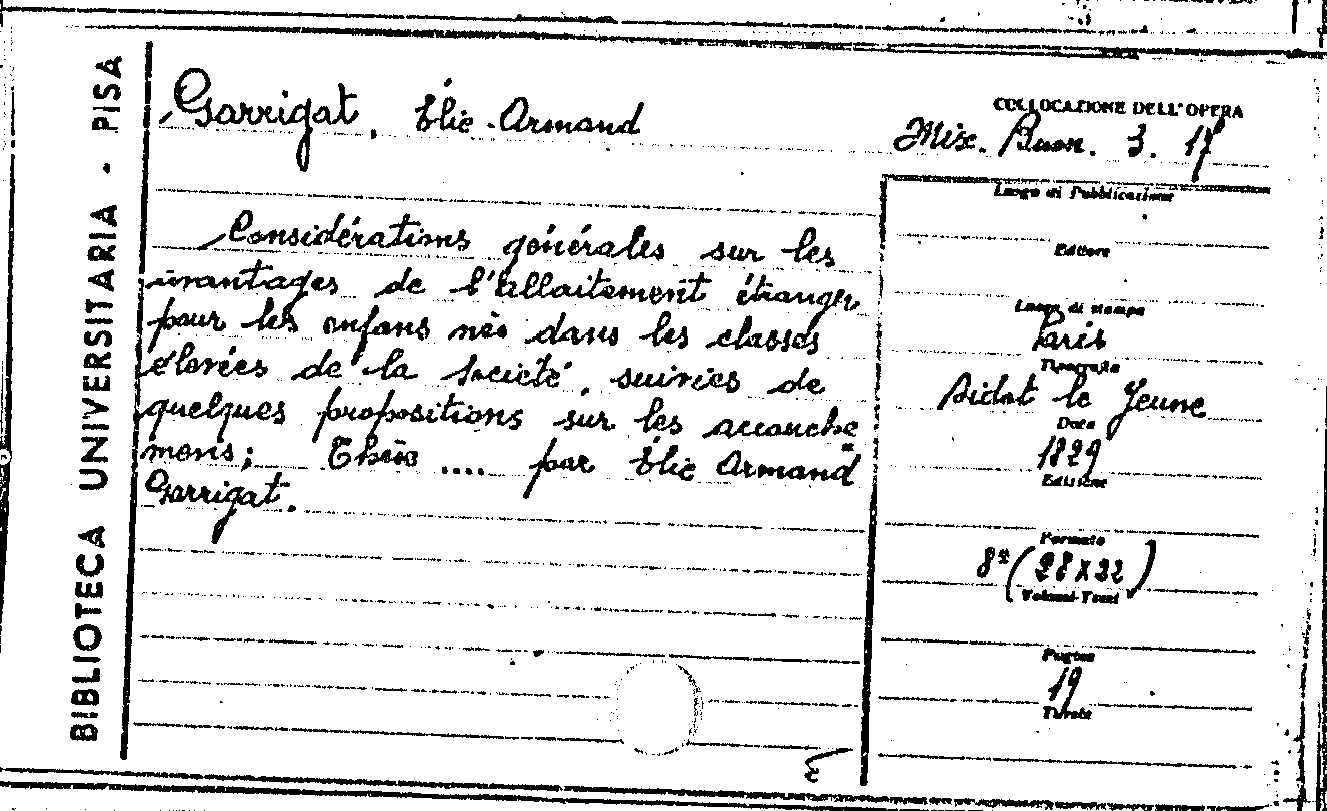 BIBLIOTECA UNIVERSITARIA - PISA
Garrigat, Élie-Armand
Considérations générales sur les
avantages de l'allaitement étranger
pour les enfans nés dans les classes
élevées de la Société, suivies de
quelques propositions sur les accouche
mens; Thèse .... par Élie Armand
Garrigat.
COLLOCAZIONE DELL'OPERA
Misc. Buon. 3. 17
Luogo di Pubblicazione
Editore
Luogo di stampa
Paris
Tipografia
Didot le Jeune
Data
1829
Edizione
Formato
8º (28x22)
Volumi-Tomi
Pagine
19
Tavole